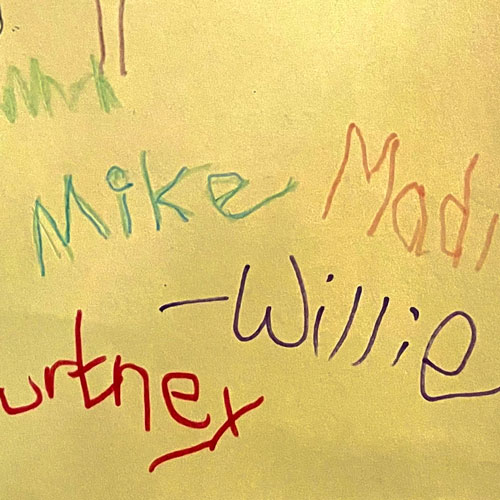 Mike Madi
-Willie
urtney